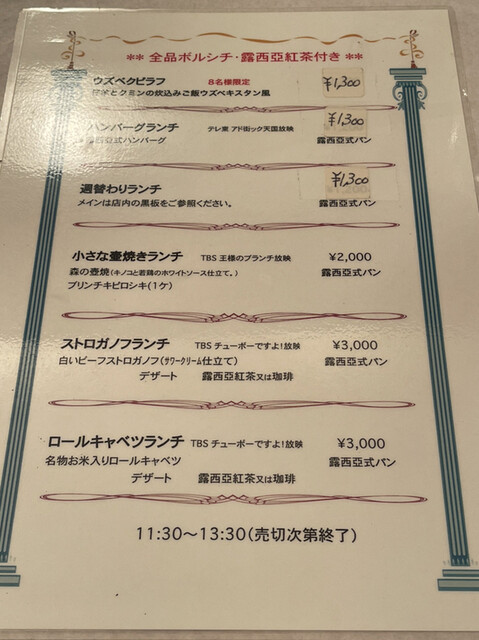 ** 全品ボルシチ・露西亞紅茶付き **
ウズベクピラフ 8名様限定 ¥1,300
とクミンの炊込みご飯ウズベキスタン風
ハンバーグランチ テレ東 アド街ック天国放映 ¥1,300
露西亞式ハンバーグ 露西亞式パン
週替わりランチ ¥1,300
メインは店内の黒板をご参照ください。 露西亞式パン
小さな壷焼きランチ TBS 王様のブランチ放映 ¥2,000
森の壺焼(キノコと若鶏のホワイトソース仕立て。) 露西亞式パン
ブリンチキピロシキ(1ケ)
ストロガノフランチ TBS チューボーですよ!放映 ¥3,000
白いビーフストロガノフ(サワークリーム仕立て) 露西亞式パン
デザート 露西亞紅茶又は珈琲
ロールキャベツランチ TBS チューボーですよ!放映 ¥3,000
名物お米入りロールキャベツ 露西亞式パン
デザート 露西亞紅茶又は珈琲
11:30～13:30(売切次第終了)